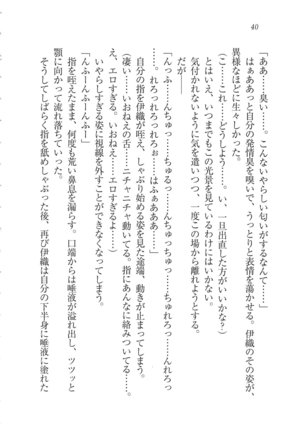 40
「ああ……臭い……。こんないやらしい匂いがするなんて……」
うっとあっと自分の発情臭を嗅いで、うっとりと表情を蕩かせる。伊織のその姿が、
異様なほどに生々しかった。
(こ……これ……どうしよう……。い、一旦出直した方がいいかな？)
とはいえ、いつまでもこの光景を見ているわけにはいかない。
気付かれないように気を遣いつつ、一度この場から離れようとする。
だが――
「んっふ……んちゅっ……ちゅっちゅっ……んちゅっちゅっ……ちゅれろっ……んれろっ
……れろっれろっれろぉ……はふぁああぁ」
自分の指を伊織が咥え、しゃぶり始める姿を見た途端、動きが止まってしまう。
(凄い……いおねえの舌……ニチャニチャ動いてる。指にあんなに絡みついてる……。
えっと、エロすぎる。いおねえ……エロすぎるよ……)
いやらしすぎる姿に視線を外すことができなくなってしまった。
「んふーんふーんふー」
指を咥えたまま、何度も荒い鼻息を漏らす。口端からは唾液が溢れ出し、ツツッと
顎に向かって流れ落ちていった。
そうしてしばらく指を舐めしゃぶった後、再び伊織は自分の下半身に唾液に塗れた